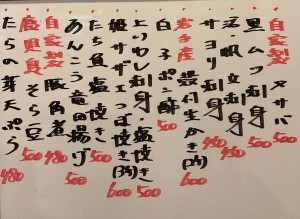 自家製 〆サバ
黒ムツ刺身
活・帆立刺身 450
サヨリ刺身 450
岩手産 殻付生かき(3ヶ) 600
白子ポン酢 500
刺身・塩焼き 500
姫サザエつぼ焼き(3ヶ) 600
たち魚塩焼き 500
あんこう竜田揚げ 500
自家製 豚角煮 480
鹿児島 そら豆 500
たらの芽天ぷら 480